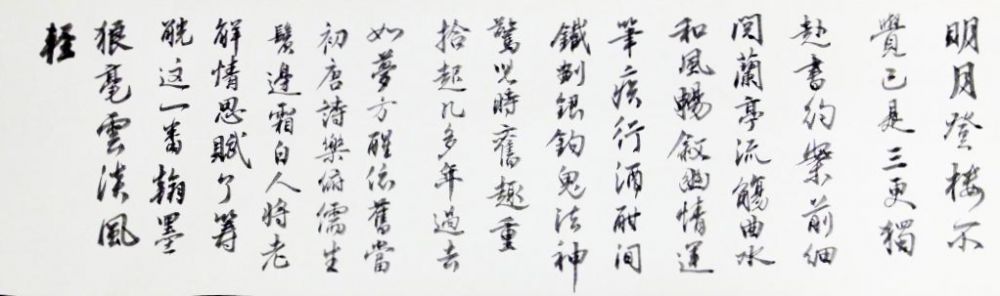 明月登楼不
覺已是三更獨
赴書約案前細
閱蘭亭流觴曲水
和風暢敘幽情運
筆疾行酒酣间
鐵劃銀鈎鬼法神
驚兒時舊趣重
拾起几多年過去
如夢方醒依舊當
初唐詩樂府儒生
鬢邊霜白人將老
解情思賦了籌
觥这一番翰墨
狼毫雲淡風
輕